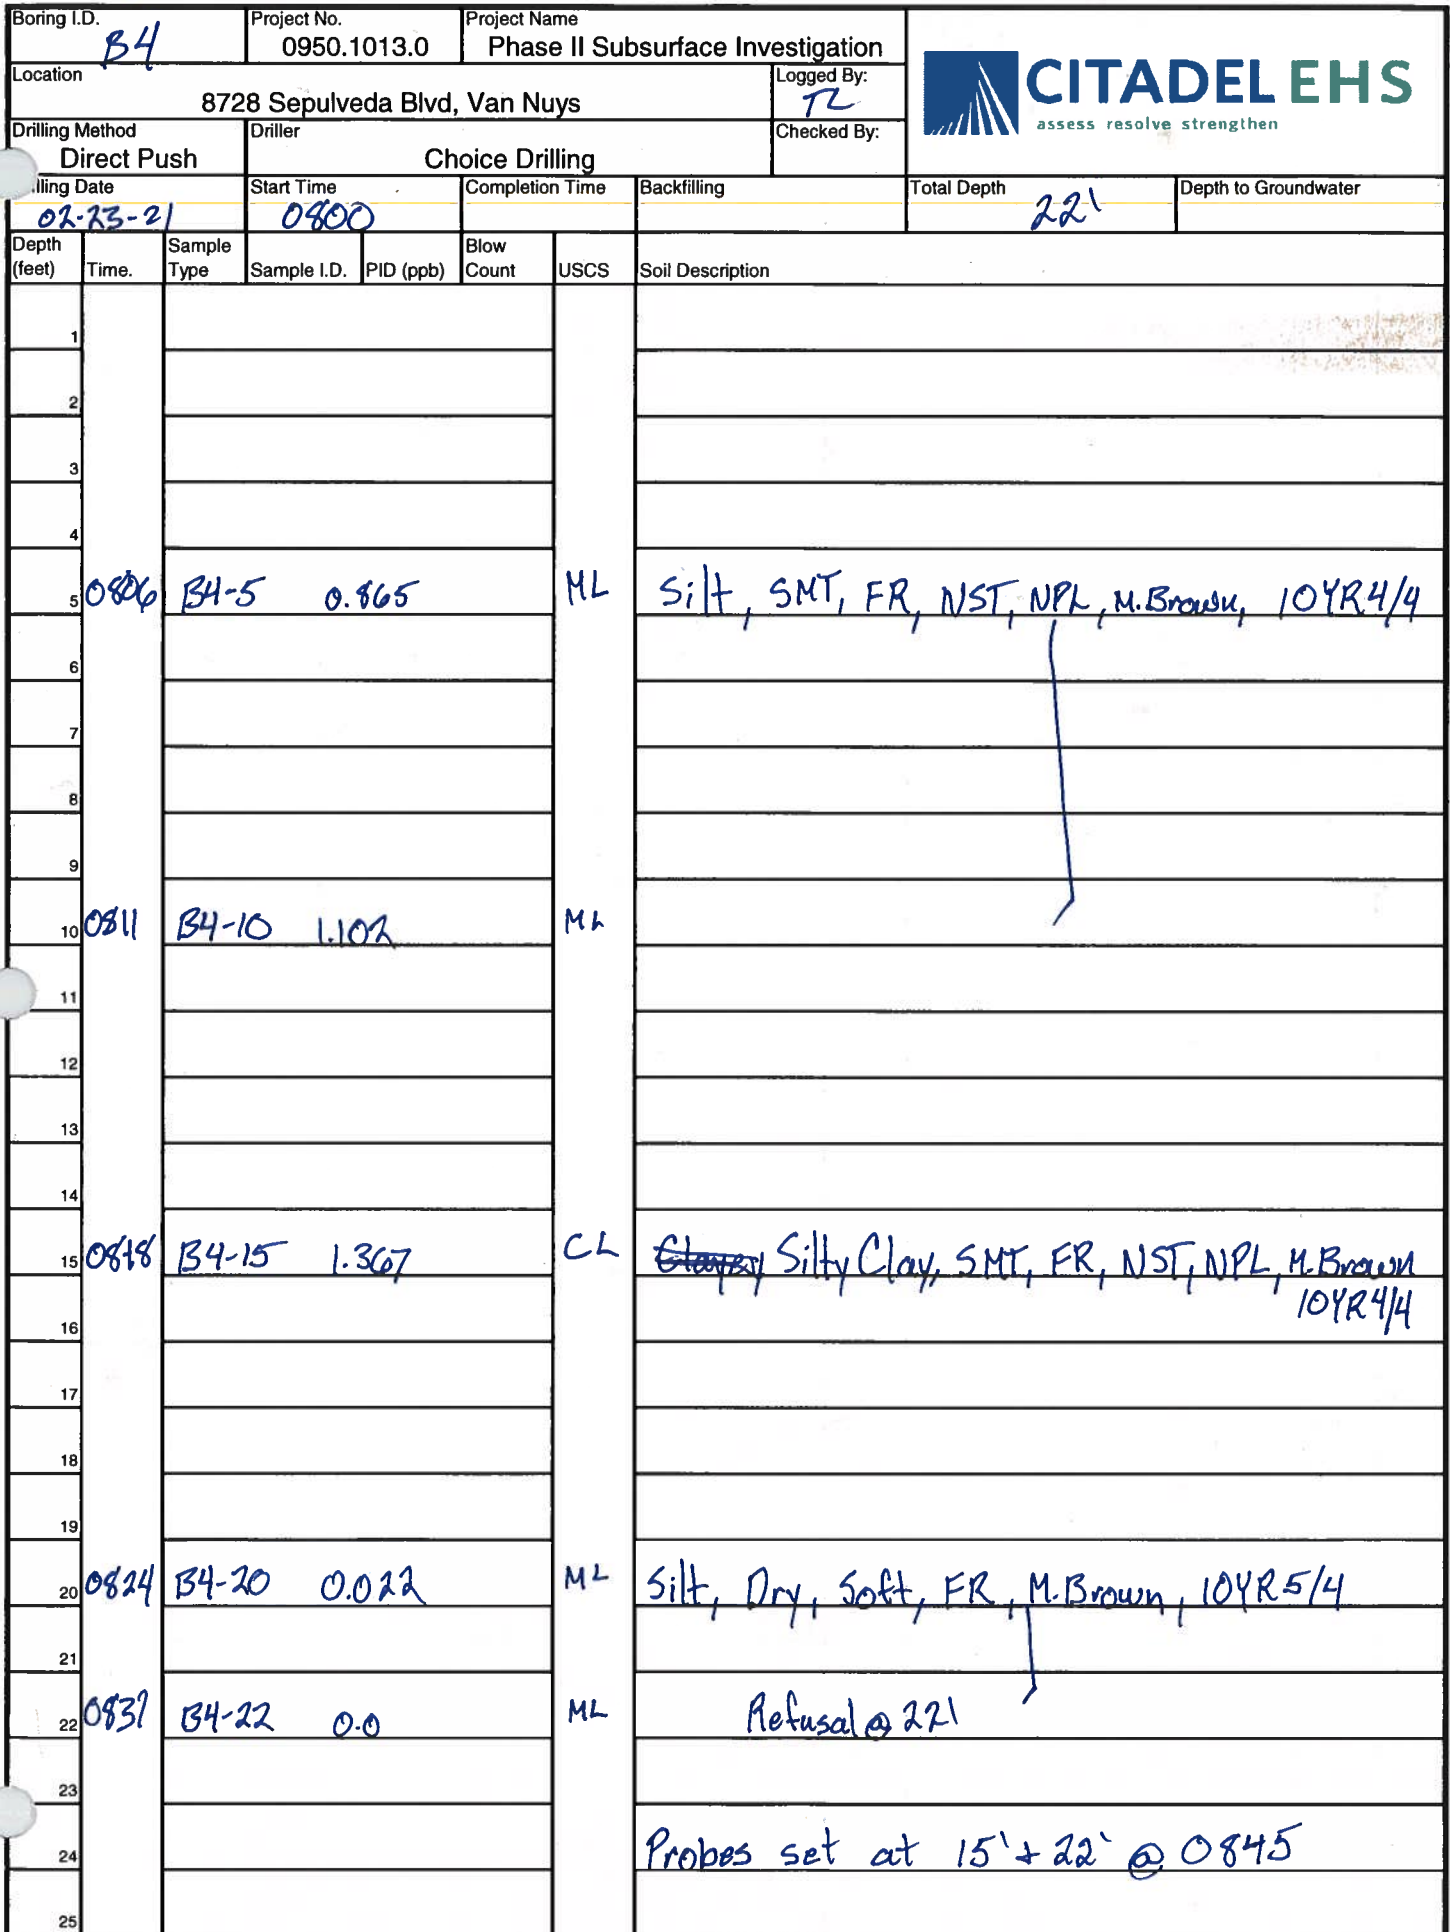 Boring I.D. Project No. Project Name
B4 0950.1013.0 Phase II Subsurface Investigation
CITADEL EHS
assess resolve strengthen
Location Logged By:
8728 Sepulveda Blvd, Van Nuys TL
Drilling Method Driller Checked By:
Direct Push Choice Drilling
lling Date Start Time Completion Time Backfilling Total Depth Depth to Groundwater
02-23-21 0800 22'
Depth (feet) Time. Sample Type Sample I.D. PID (ppb) Blow Count USCS Soil Description
1
2
3
4
5 0806 B4-5 0.865 ML Silt, SMT, FR, NST, NPL, M.Brown, 10YR4/4
6
7
8
9
10 0811 B4-10 1.102 ML
11
12
13
14
15 0818 B4-15 1.367 CL Clayey Silty Clay, SMT, FR, NST, NPL, M.Brown
10YR4/4
16
17
18
19
20 0824 B4-20 0.022 ML Silt, Dry, Soft, FR, M.Brown, 10YR5/4
21
22 0837 B4-22 0.0 ML Refusal @ 22'
23
24 Probes set at 15' + 22' @ 0845
25